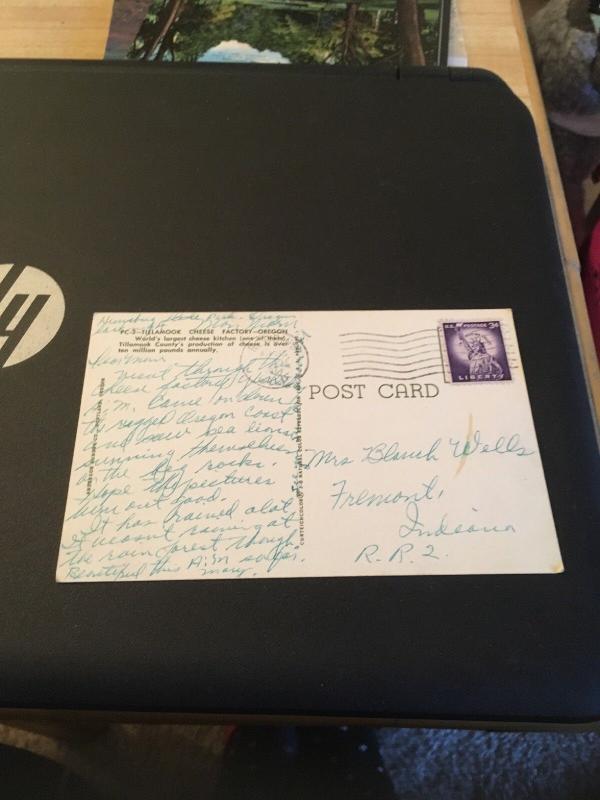 Park. Oregon
PC-3—TILLAMOOK CHEESE FACTORY—OREGON
World's largest cheese kitchen (one of them).
Tillamook County's production of cheese is over
ten million pounds annually.
Dear Mom:
Went through this
cheese factory
A.M. Came on down
the rugged Oregon Coast
and saw sea lions
sunning themselves
on the big rocks.
Hope my pictures
turn out good.
It has rained a lot.
It wasn't raining at
the rain forest though.
Beautiful this A.M. so far.
Mary.
POST CARD
U.S. POSTAGE 3¢
LIBERTY
Mrs Blanch Wells
Fremont,
Indiana
R.R. 2.
hp